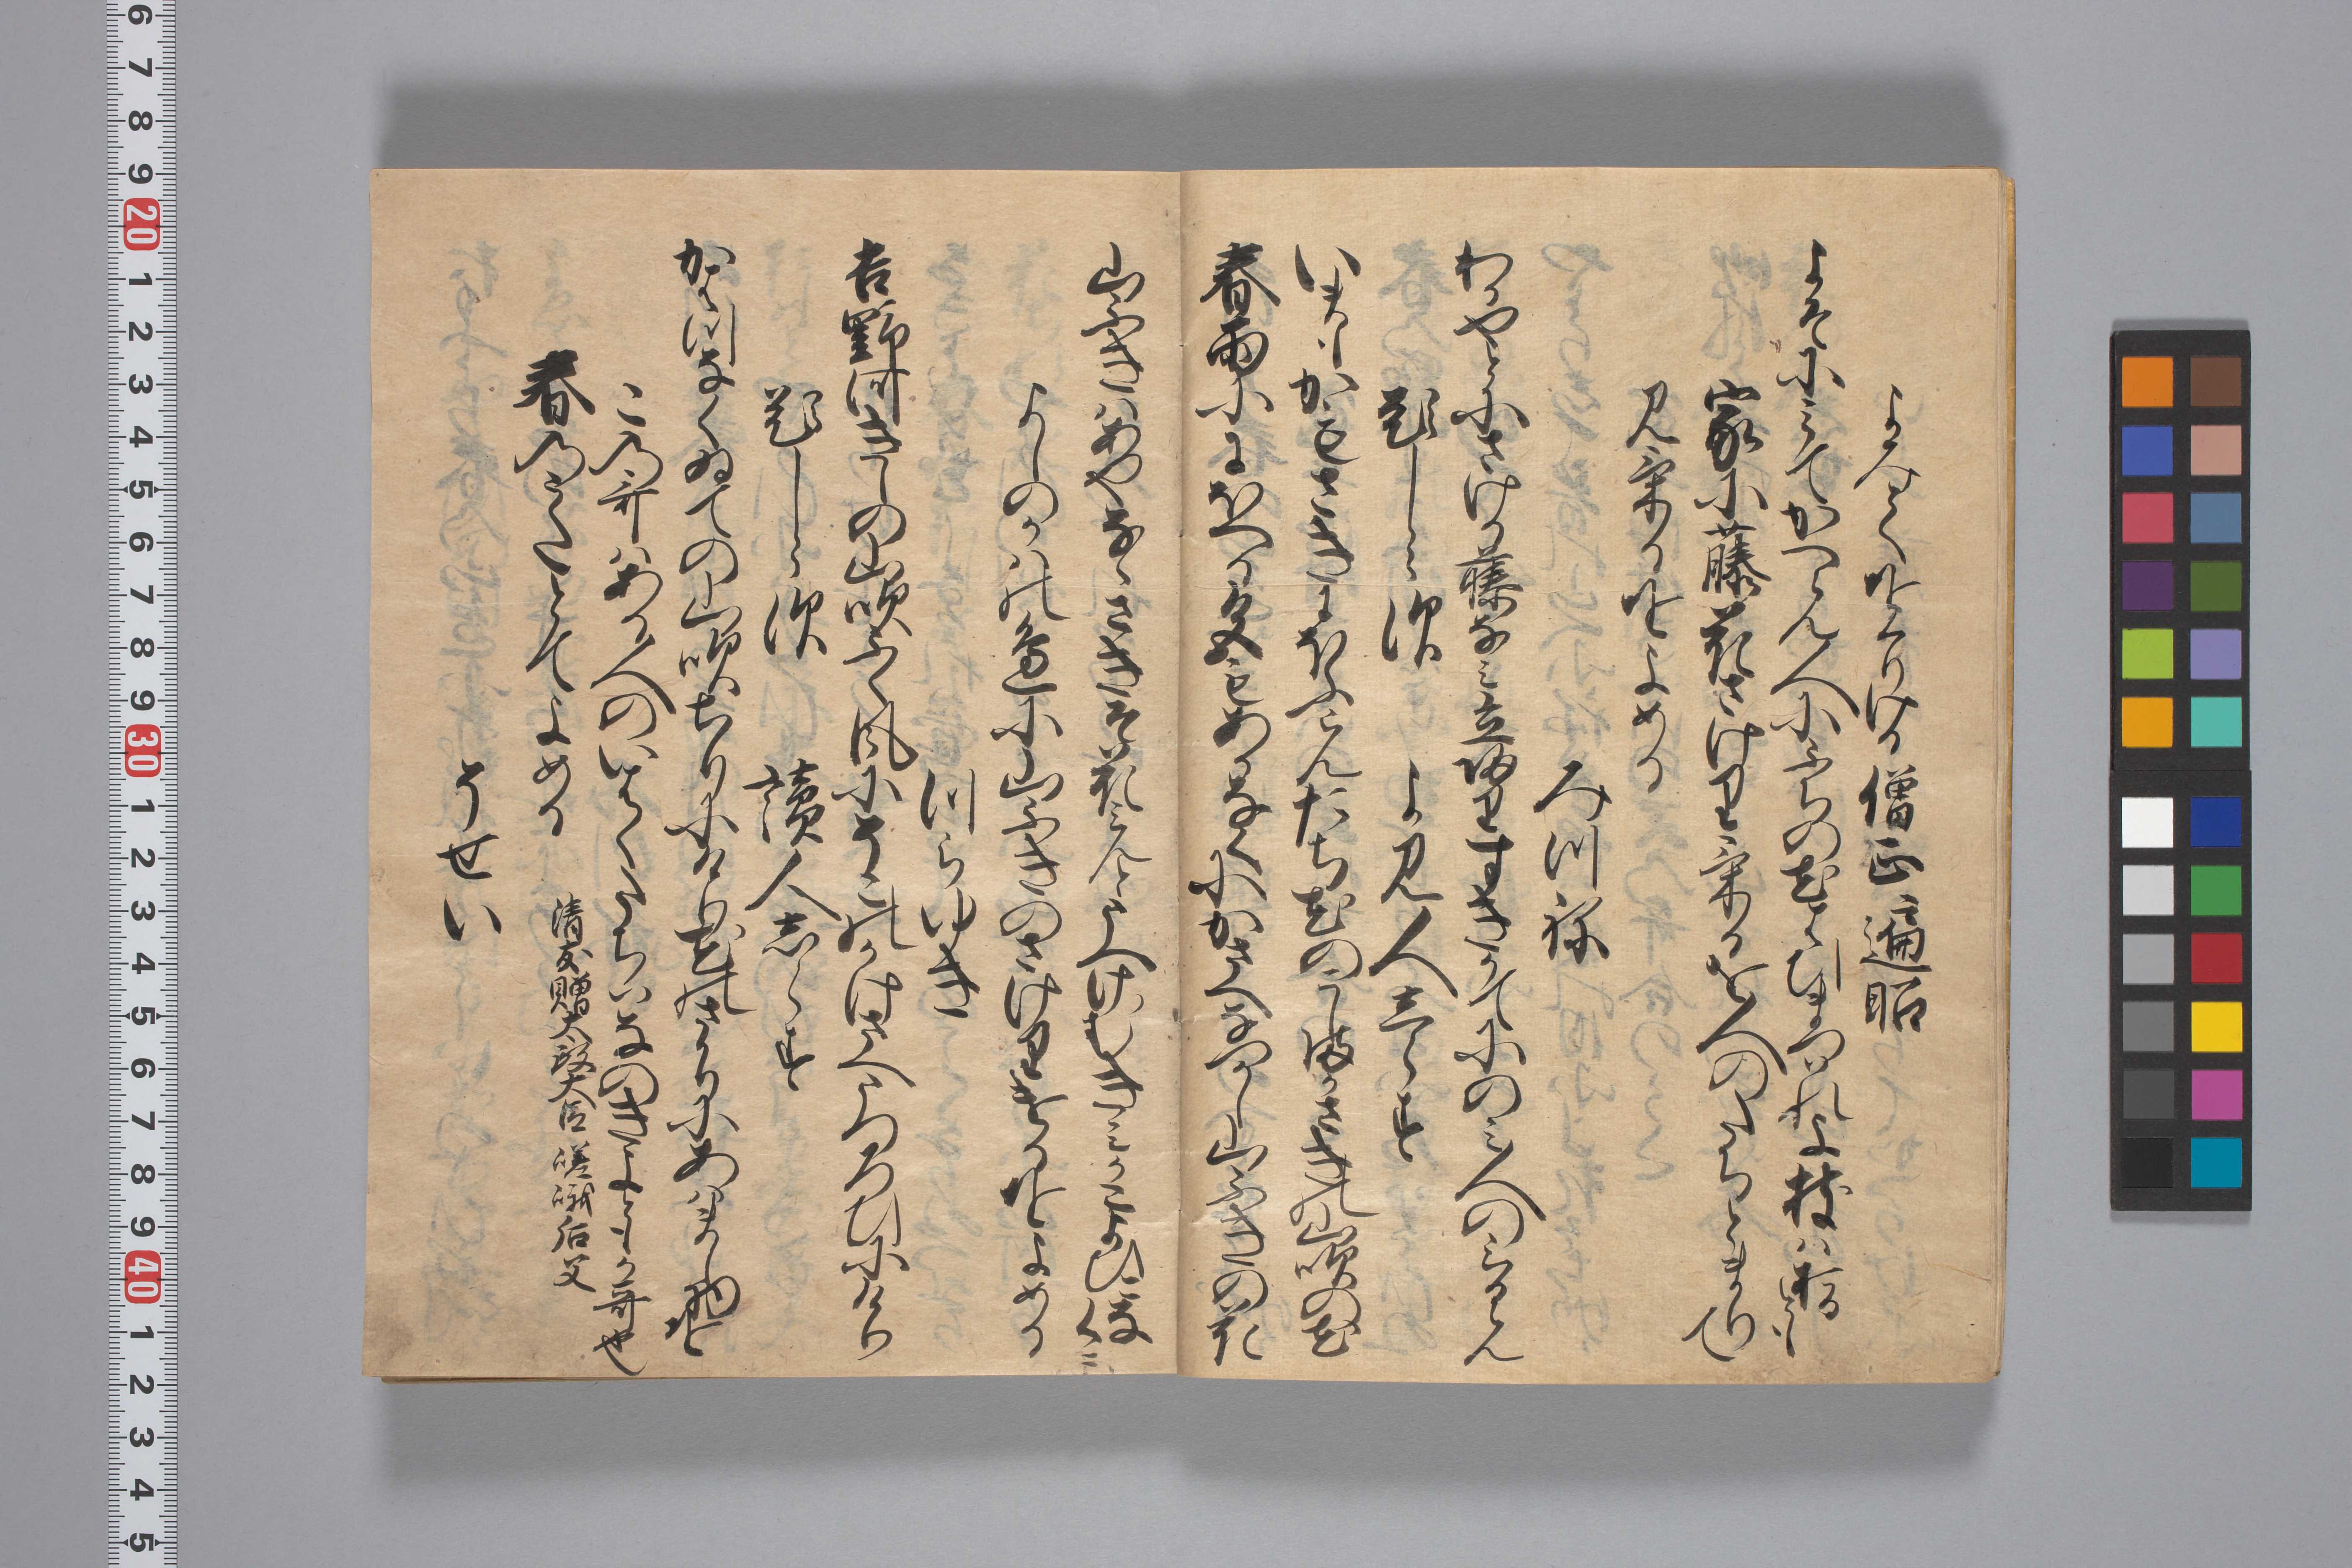 よみてをくりける　僧正遍昭
よそにみてかへらん人にふちの花はひまつはれよ枝はおるとも
家に藤花さけりけるを人のたちとまりて
見けるをよめる
みつね
わかやとにさける藤なみ立帰りすきかてにのみ人のみるらん
題しらす　よみ人しらす
いまもかもさきにほふらんたち花のこしまのさきの山吹の花
春雨ににほへる色もあかなくにかさへなつかし山ふきの花
山ふきはあやなゝさきそ花みんとうへけん君かこよひこなくに
よしの河の邊に山ふきのさけりけるをよめる
つらゆき
吉野河岸の山吹ふく風にそこの影さへうつろひにけり
題しらす　讀人志らす
かはつなくゐての山吹ちりにけり花のさかりにあはまし物を
この哥はある人のいはくたちはなのきよともか哥也
春のうたとてよめる
清友贈太政大臣嵯峨后父
そせい